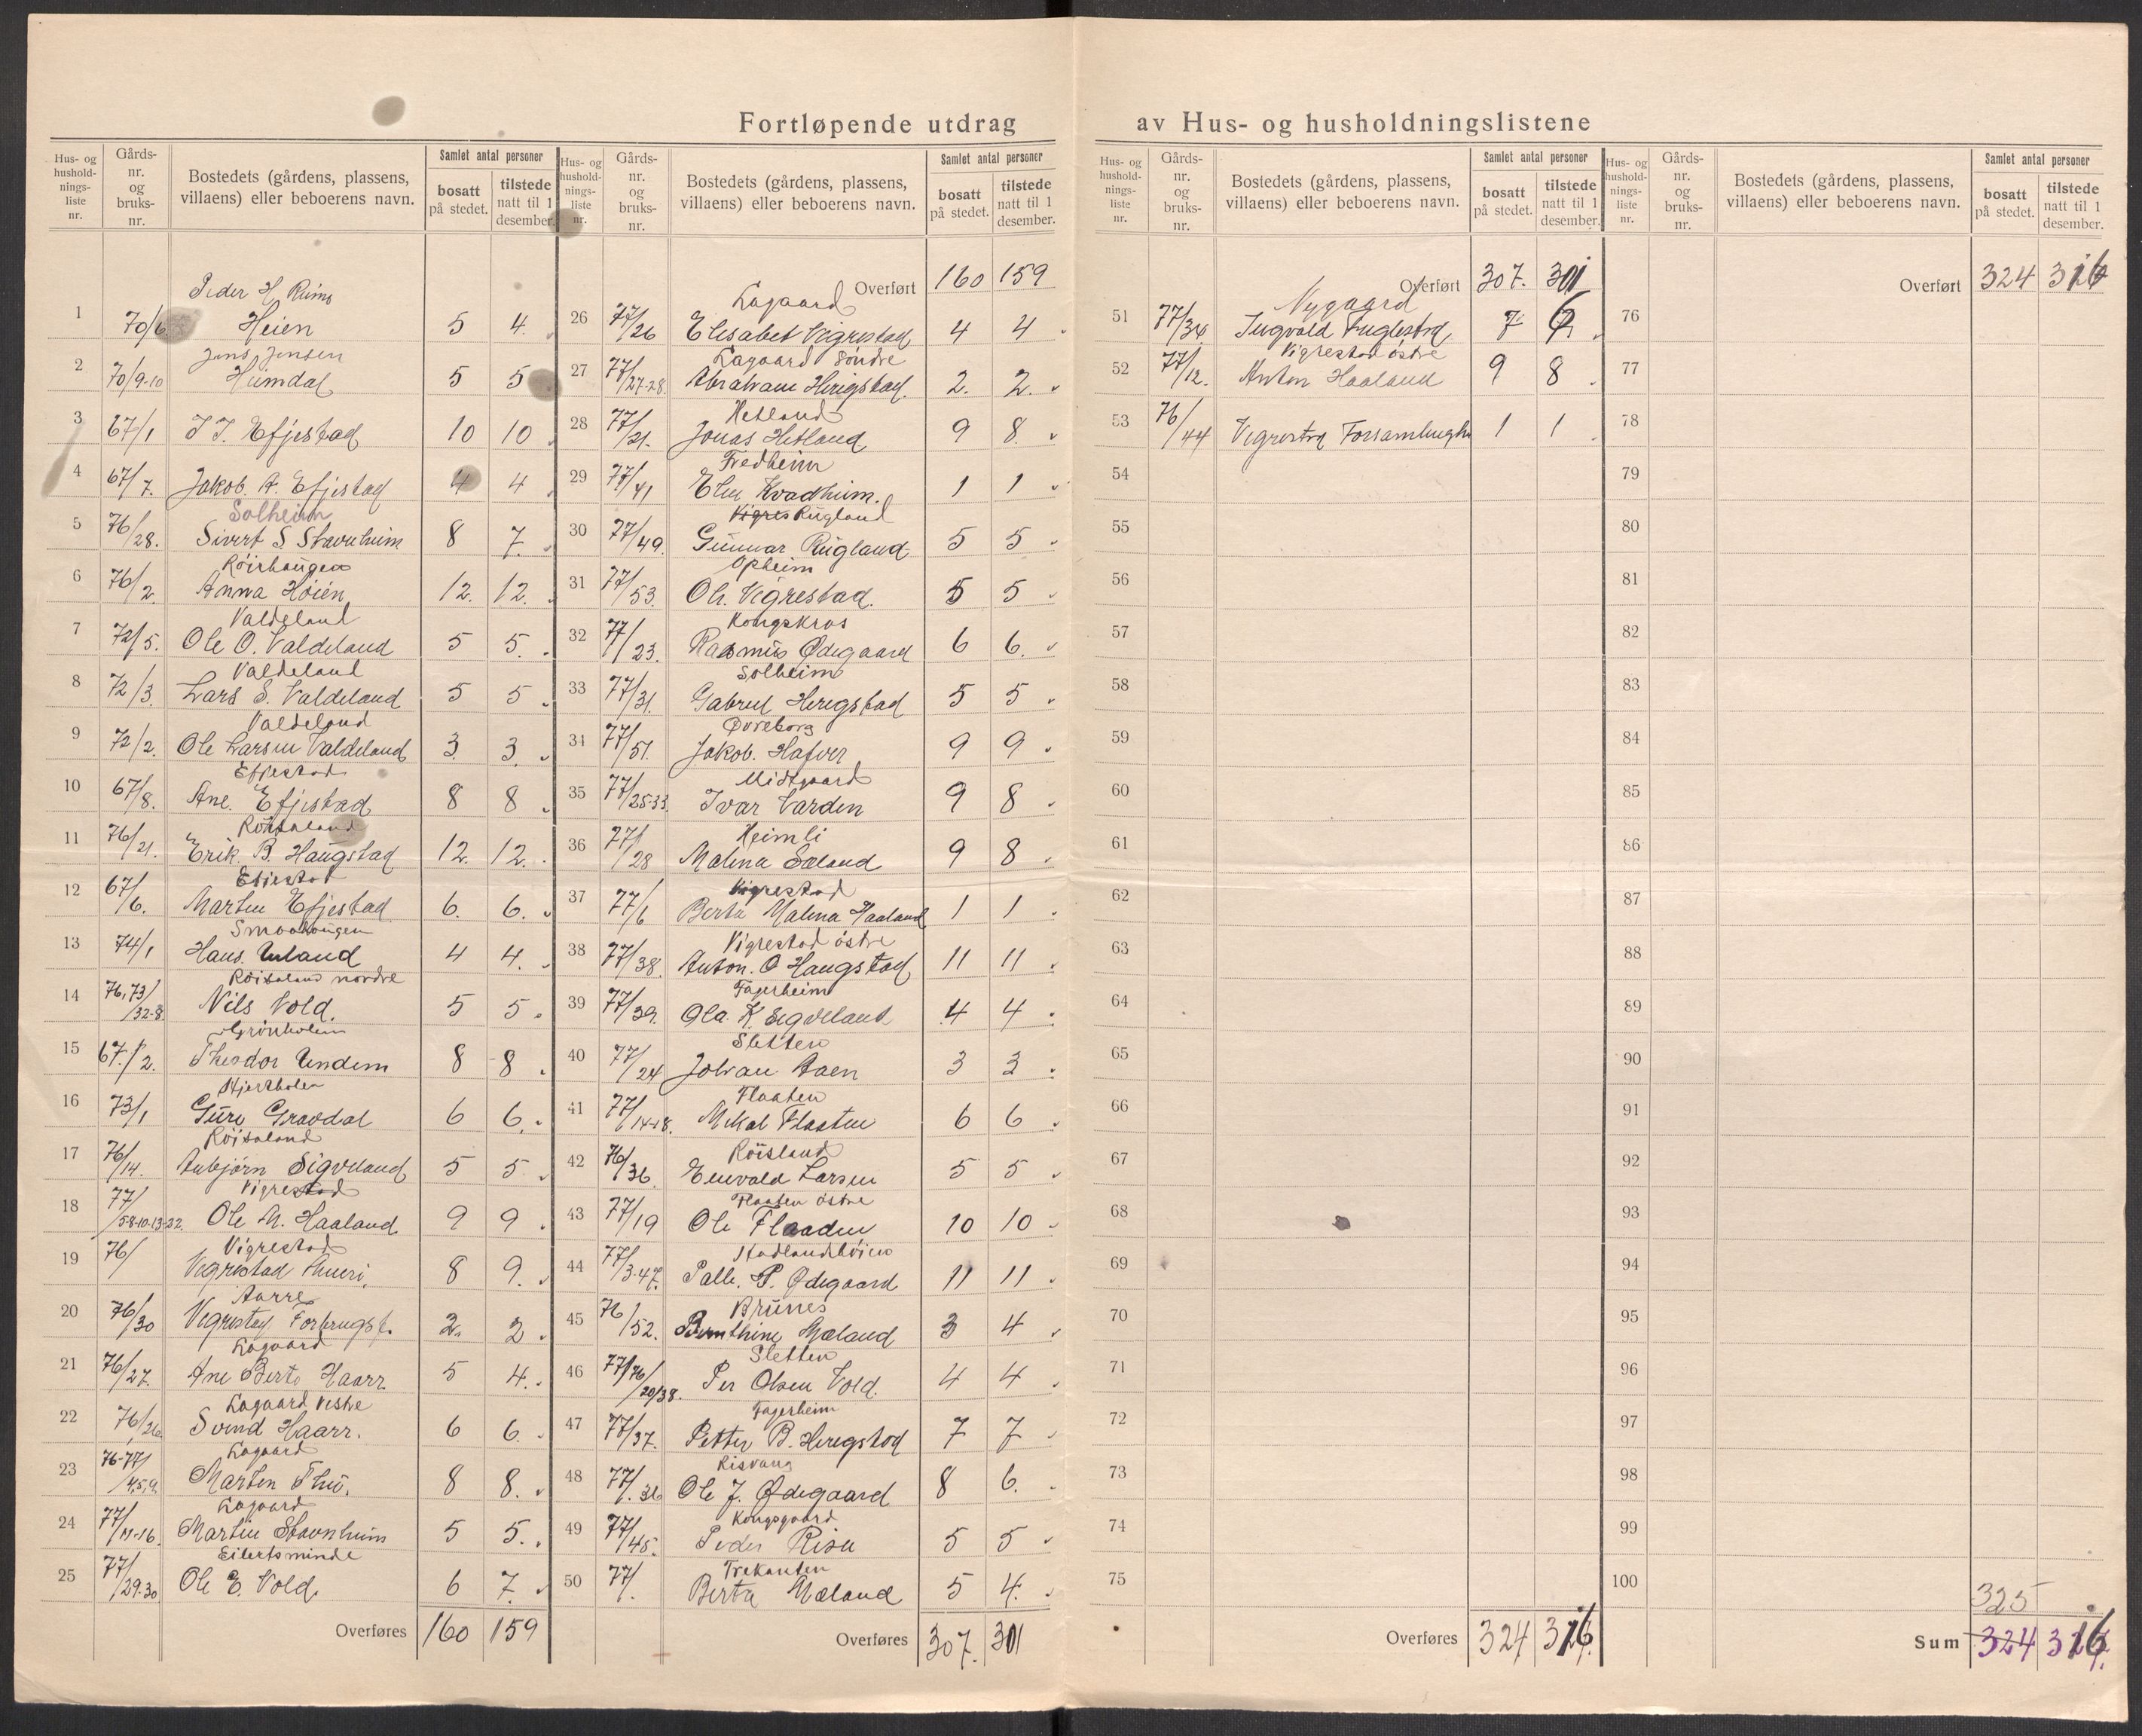 Fortløpende utdrag av Hus- og husholdningslistene
Hus- og husholdnings-liste nr. Gårds-nr. og bruks-nr. Bostedets (gårdens, plassens, villaens) eller beboerens navn. Samlet antal personer bosatt på stedet. tilstede natt til 1 desember.
Peder H
1 70/6 Heien 5 4
Jens Jensen
2 70/9-10 Heimdal 5 5
3 67/1 J J. Efjestad 10 10
4 67/7. Jakob. A. Efjestad 4 4
Solheim
5 76/28. Sivert S Stavnheim 8 7.
Röishaugen
6 76/2. Anna Höien 12. 12.
Valdeland
7 72/5. Ole O. Valdeland 5 5.
Valdeland
8 72/3. Lars S. Valdeland 5 5
Valdeland
9 72/2. Ole Larsen Valdeland 3. 3.
Efjestad
10 67/8. Ane. Efjestad 8 8
Röisaland
11 76/21. Erik. B. Haugstad 12. 12.
Efjestad
12 67/6. Martin Efjestad 6. 6.
Smaahaugen
13 74/1 Hans. Ueland 4 4.
Röisaland nordre
14 76,73/32-8. Nils Vold. 5 5.
Grönholm
15 67./2. Theodor Undem 8 8
Hjertholen
16 73/1 Guro Gravdal 6 6.
Röisaland
17 76/14. Aubjörn Sigveland 5 5
Vigrestad
18 77/5-8-10-13-22. Ole M. Haaland 9 9
Vigrestad
19 76/ Vigrestad 8 9.
Aarre
20 76/30 Vigrestad Forbrugsf. 2. 2.
Lagaard
21 76/27. Ane Berte Haarr 5 4.
Lagaard vestre
22 76/26 Svend Haarr. 6 6
Lagaard
23 76-77/4,5,9. Marten Thu. 8 8.
Lagaard
24 77/11-16. Martin Stavnheim 5 5.
Eilertsminde
25 77/29-30 Ole E. Vold. 6 7.
Overføres 160 159
Hus- og husholdnings-liste nr. Gårds-nr. og bruks-nr. Bostedets (gårdens, plassens, villaens) eller beboerens navn. Samlet antal personer bosatt på stedet. tilstede natt til 1 desember.
Overført 160 159
Lagaard
26 77/26 Elisabet Vigrestad 4 4
Lagaard Söndre
27 77/27-28. Abraham Heregstad. 2. 2.
Hetland
28 77/21. Jonas Hetland 9 8.
Fredheim
29 77/41 Elen Kvadheim. 1 1
Vigres Rugland
30 77/49. Gunnar Rugland 5 5
Opheim
31 77/53. Ole. Vigrestad. 5 5
Kongskros
32 77/23. Rasmus Ødegaard 6 6.
Solheim
33 77/31. Gabriel Heregstad 5 5
Øvreborg
34 77/51. Jakob. Hafver 9 9
Midtgaard
35 77/25-33. Ivar Varden 9 8
Heimli
36 77/28 Malena Sæland 9 8
Vigrestad
37 77/6 Berta Malena Haaland 1 1
Vigrestad östre
38 77/38. Anton. O Haugstad 11 11
Fagerheim
39 77/39. Ola. K. Sigveland 4 4
Sletten
40 77/24 Johan Aaen 3 3
Flaaten
41 77/14-18. Mikal Flaaten 6 6
Röisland
42 76/36. Enevald Larsen 5 5
Flaaten östre
43 77/19 Ole Flaaden 10 10
44 77/3-47. Palle. P. Ødegaard 11 11
Brunes
45 76/52. Bernthine Mæland 3 4
Sletten
46 77/76/20/38. Per Olsen Vold. 4 4
Fagerheim
47 77/37. Petter B. Heregstad 7 7
Risvang
48 77/.36 Ole J. Ødegaard 8 6.
Kongsgaard
49 77/45. Peder Risa 5 5
Trekanten
50 77/. Berta Mæland 5 4.
Overføres 307. 301
Hus- og husholdnings-liste nr. Gårds-nr. og bruks-nr. Bostedets (gårdens, plassens, villaens) eller beboerens navn. Samlet antal personer bosatt på stedet. tilstede natt til 1 desember.
Overført 307. 301
Nygaard
51 77/34 Ingvald Fuglestad 7 6
Vigrestad östre
52 77/12. Anton Haaland 9 8
53 76/44 Vigrestad 1 1
54
55
56
57
58
59
60
61
62
63
64
65
66
67
68
69
70
71
72
73
74
75
Overføres 324 316
Hus- og husholdnings-liste nr. Gårds-nr. og bruks-nr. Bostedets (gårdens, plassens, villaens) eller beboerens navn. Samlet antal personer bosatt på stedet. tilstede natt til 1 desember.
Overført 324 316
76
77
78
79
80
81
82
83
84
85
86
87
88
89
90
91
92
93
94
95
96
97
98
99
100
325
Sum 324 316